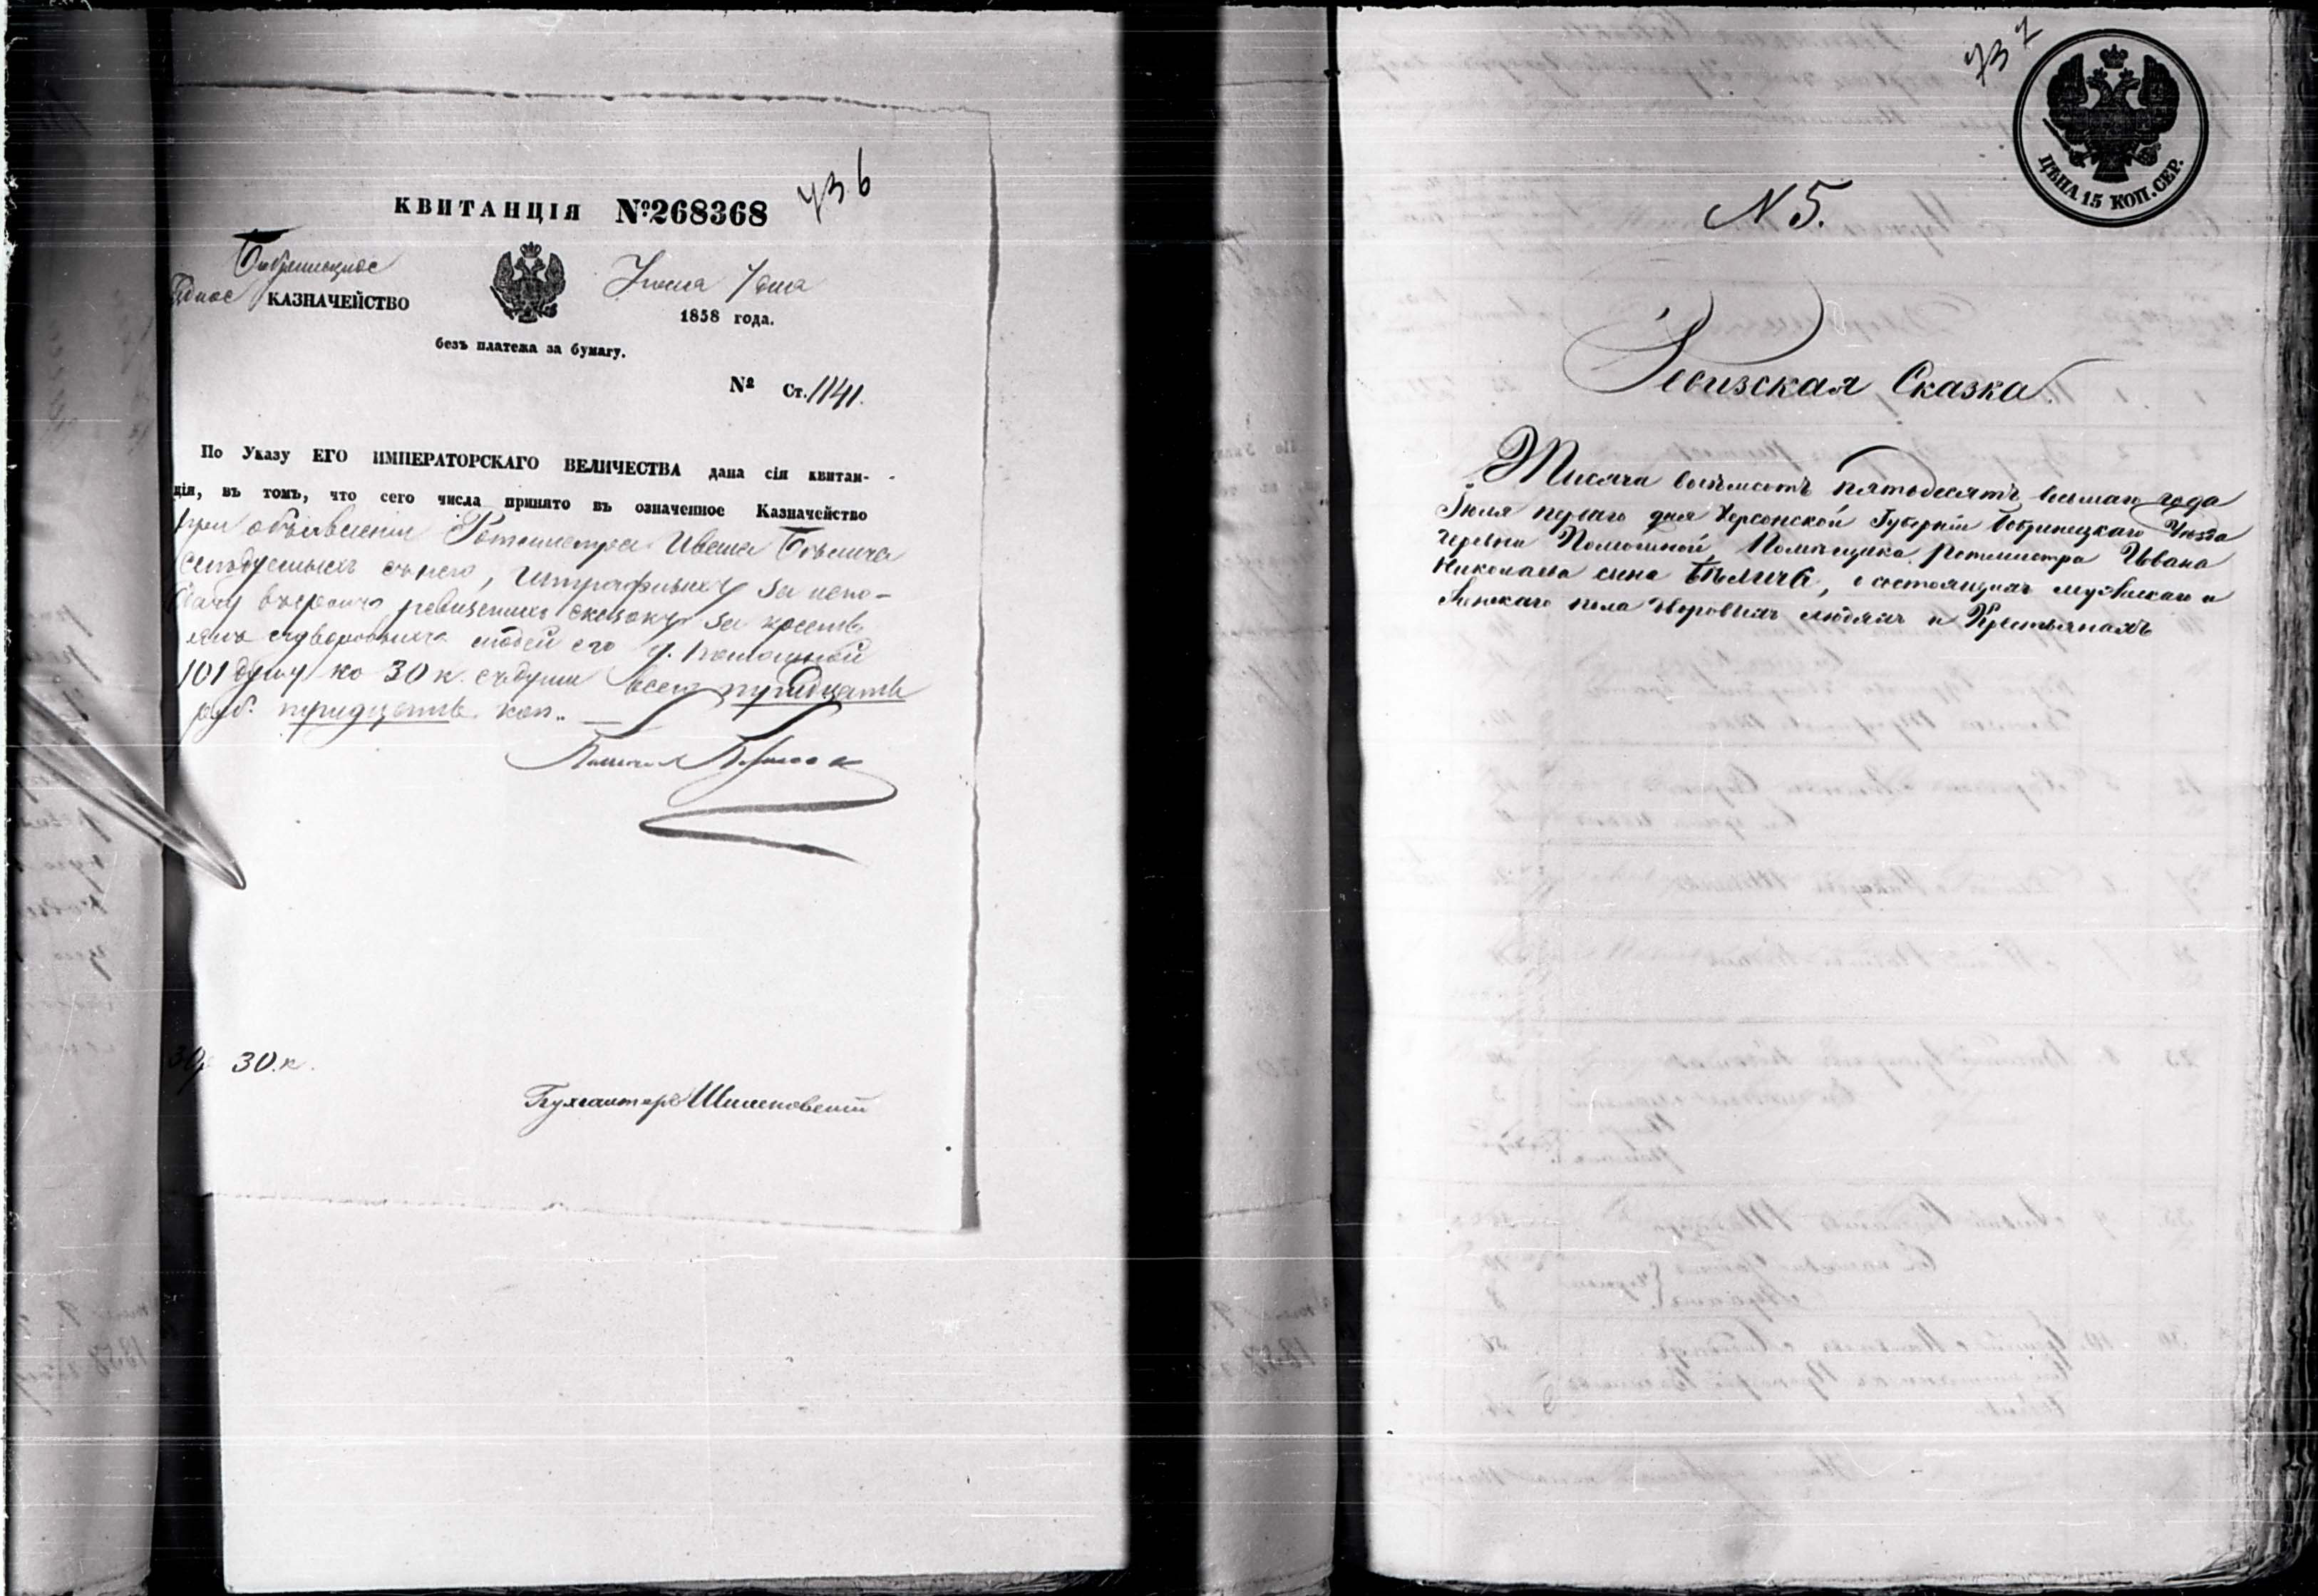 736
КВИТАНЦІЯ №268368
Бобринецкое
Уѣдное КАЗНАЧЕЙСТВО
Іюня 7 дня
1858 года.
безъ платежа за бумагу.
№ Ст. 1141.
По Указу ЕГО ИМПЕРАТОРСКАГО ВЕЛИЧЕСТВА дана сія квитан-
ція, въ томъ, что сего числа принято въ означенное Казначейство
при объявленіи Ротмистра Ивана Бѣлича
слѣдуемыхъ съ него, штрафныхъ за непо-
дачу въ срокъ ревизскихъ сказокъ за крестья
янъ и дворовыхъ людей его д. Помошной
101 душу по 30 к. съ души всего тридцать
руб. тридцать коп.
30 р 30. к.
Бухгалтеръ
737
ЦѢНА 15 КОП. СЕР.
N 5.
Ревизская Сказка.
Тысяча восемьсотъ пятьдесятъ восьмаго года
Іюля перваго дня Херсонской Губерніи Бобринецкаго Уѣзда
деревни Помошной, Помѣщика Ротмистра Ивана
Николаева сына Бѣлича, о состоящихъ мужескаго и
женскаго пола дворовыхъ людяхъ и Крестьянахъ